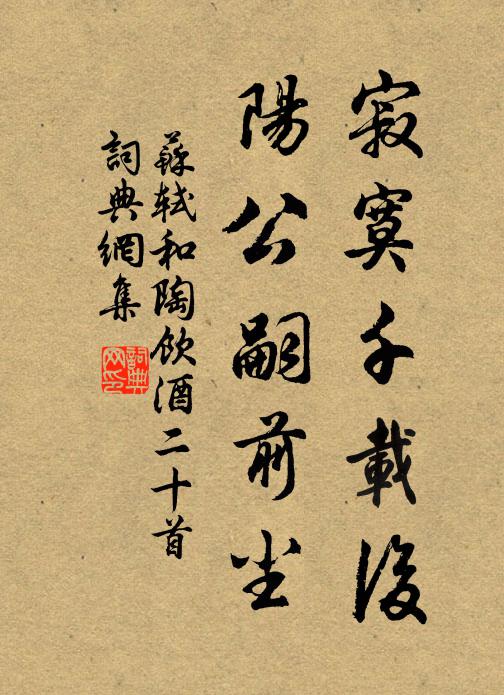 寂寞千載後
陽公嗣前尘
蘇軾和陶飲酒二十首
詞典網集
詞典
网印